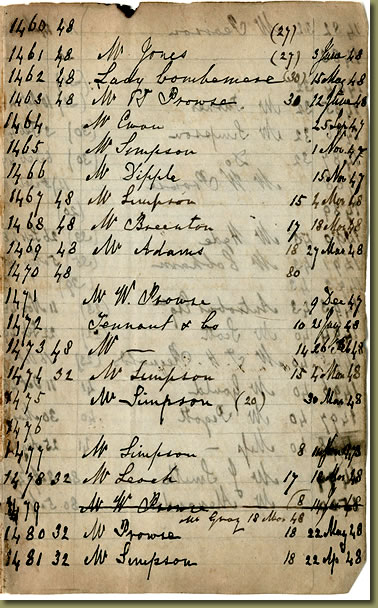 1460 48 (27)
1461 48 Mr Jones (27) 3 June 48
1462 48 Lady Combemere (30) 15 May 48
1463 48 Mr Prowse 30 12 June 48
1464 Mr Ewan 25 47
1465 Mr Simpson 1 Nov 47
1466 Mr Dipple 15 Nov 47
1467 48 Mr Simpson 15 4 Mar 48
1468 48 Mr Breenton 17 18 Mar 48
1469 48 Mr Adams 18 27 Mar 48
1470 48 80
1471 Mr W. Prowse 9 Dec 47
1472 Tennant & Co 10 48
1473 48 Mr — 14 48
1474 32 Mr Simpson 15 4 Mar 48
1475 Mr Simpson (20) 30 Mar 48
1476
1477 Mr Simpson 8
1478 32 Mr Leach 17 48
1479 Mr W Prowse (8 48
Mr Gray 18 Mar 48
1480 32 Mr Prowse 18 22 May 48
1481 32 Mr Simpson 18 22 Ap 48